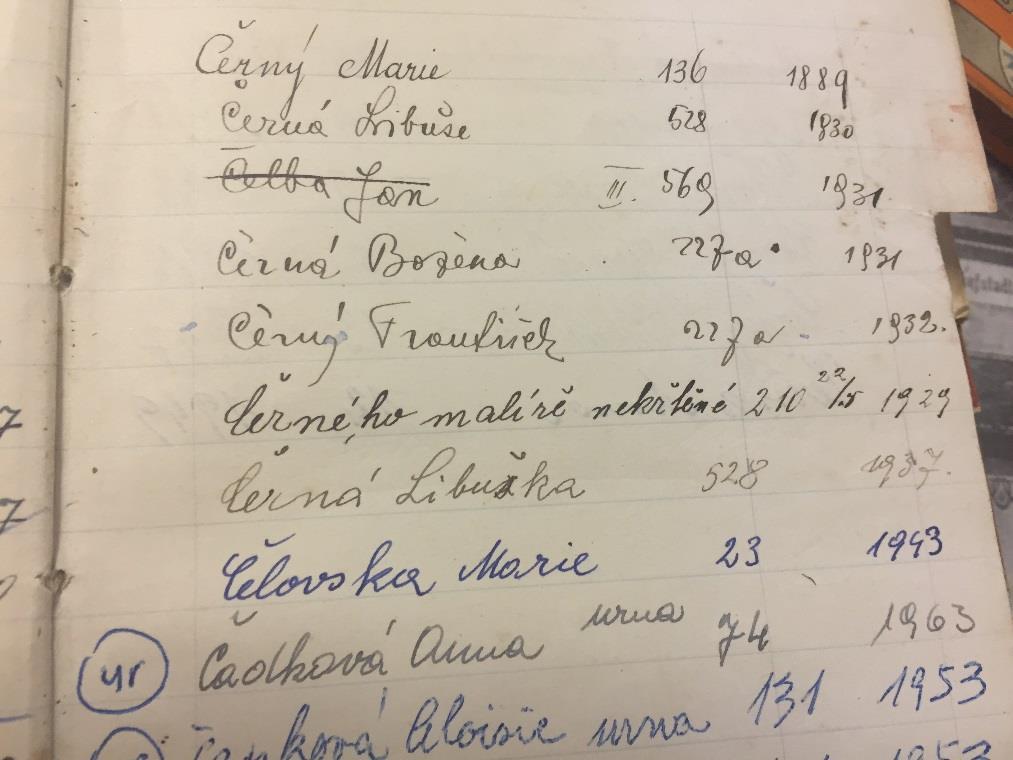 Černý Marie 136 1889
Černá Libuše 528 1930
Čelba Jan III. 569 1931
Černá Božena 227a 1931
Černý František 227a 1932.
Černého malíře nekřtěné 210 22/5 1929
Černá Libuška 528 1937.
Čelovska Marie 23 1943
ur Čadková Anna urna 74 1963
Aloisie urna 131 1953
1953